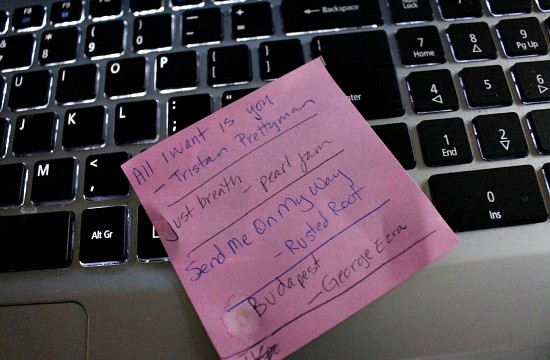 All I want is you
- Tristan Prettyman
Just breath
- pearl jam
Send Me On My Way
- Rusted Root
Budapest
- George Ezra
Backspace
Lock
7
Home
8
9
Pg Up
4
5
6
1
End
2
0
Ins
Alt Gr
U
I
O
P
J
K
L
M
8
9
0
(
)
:
;
<
,
{
[
}
]